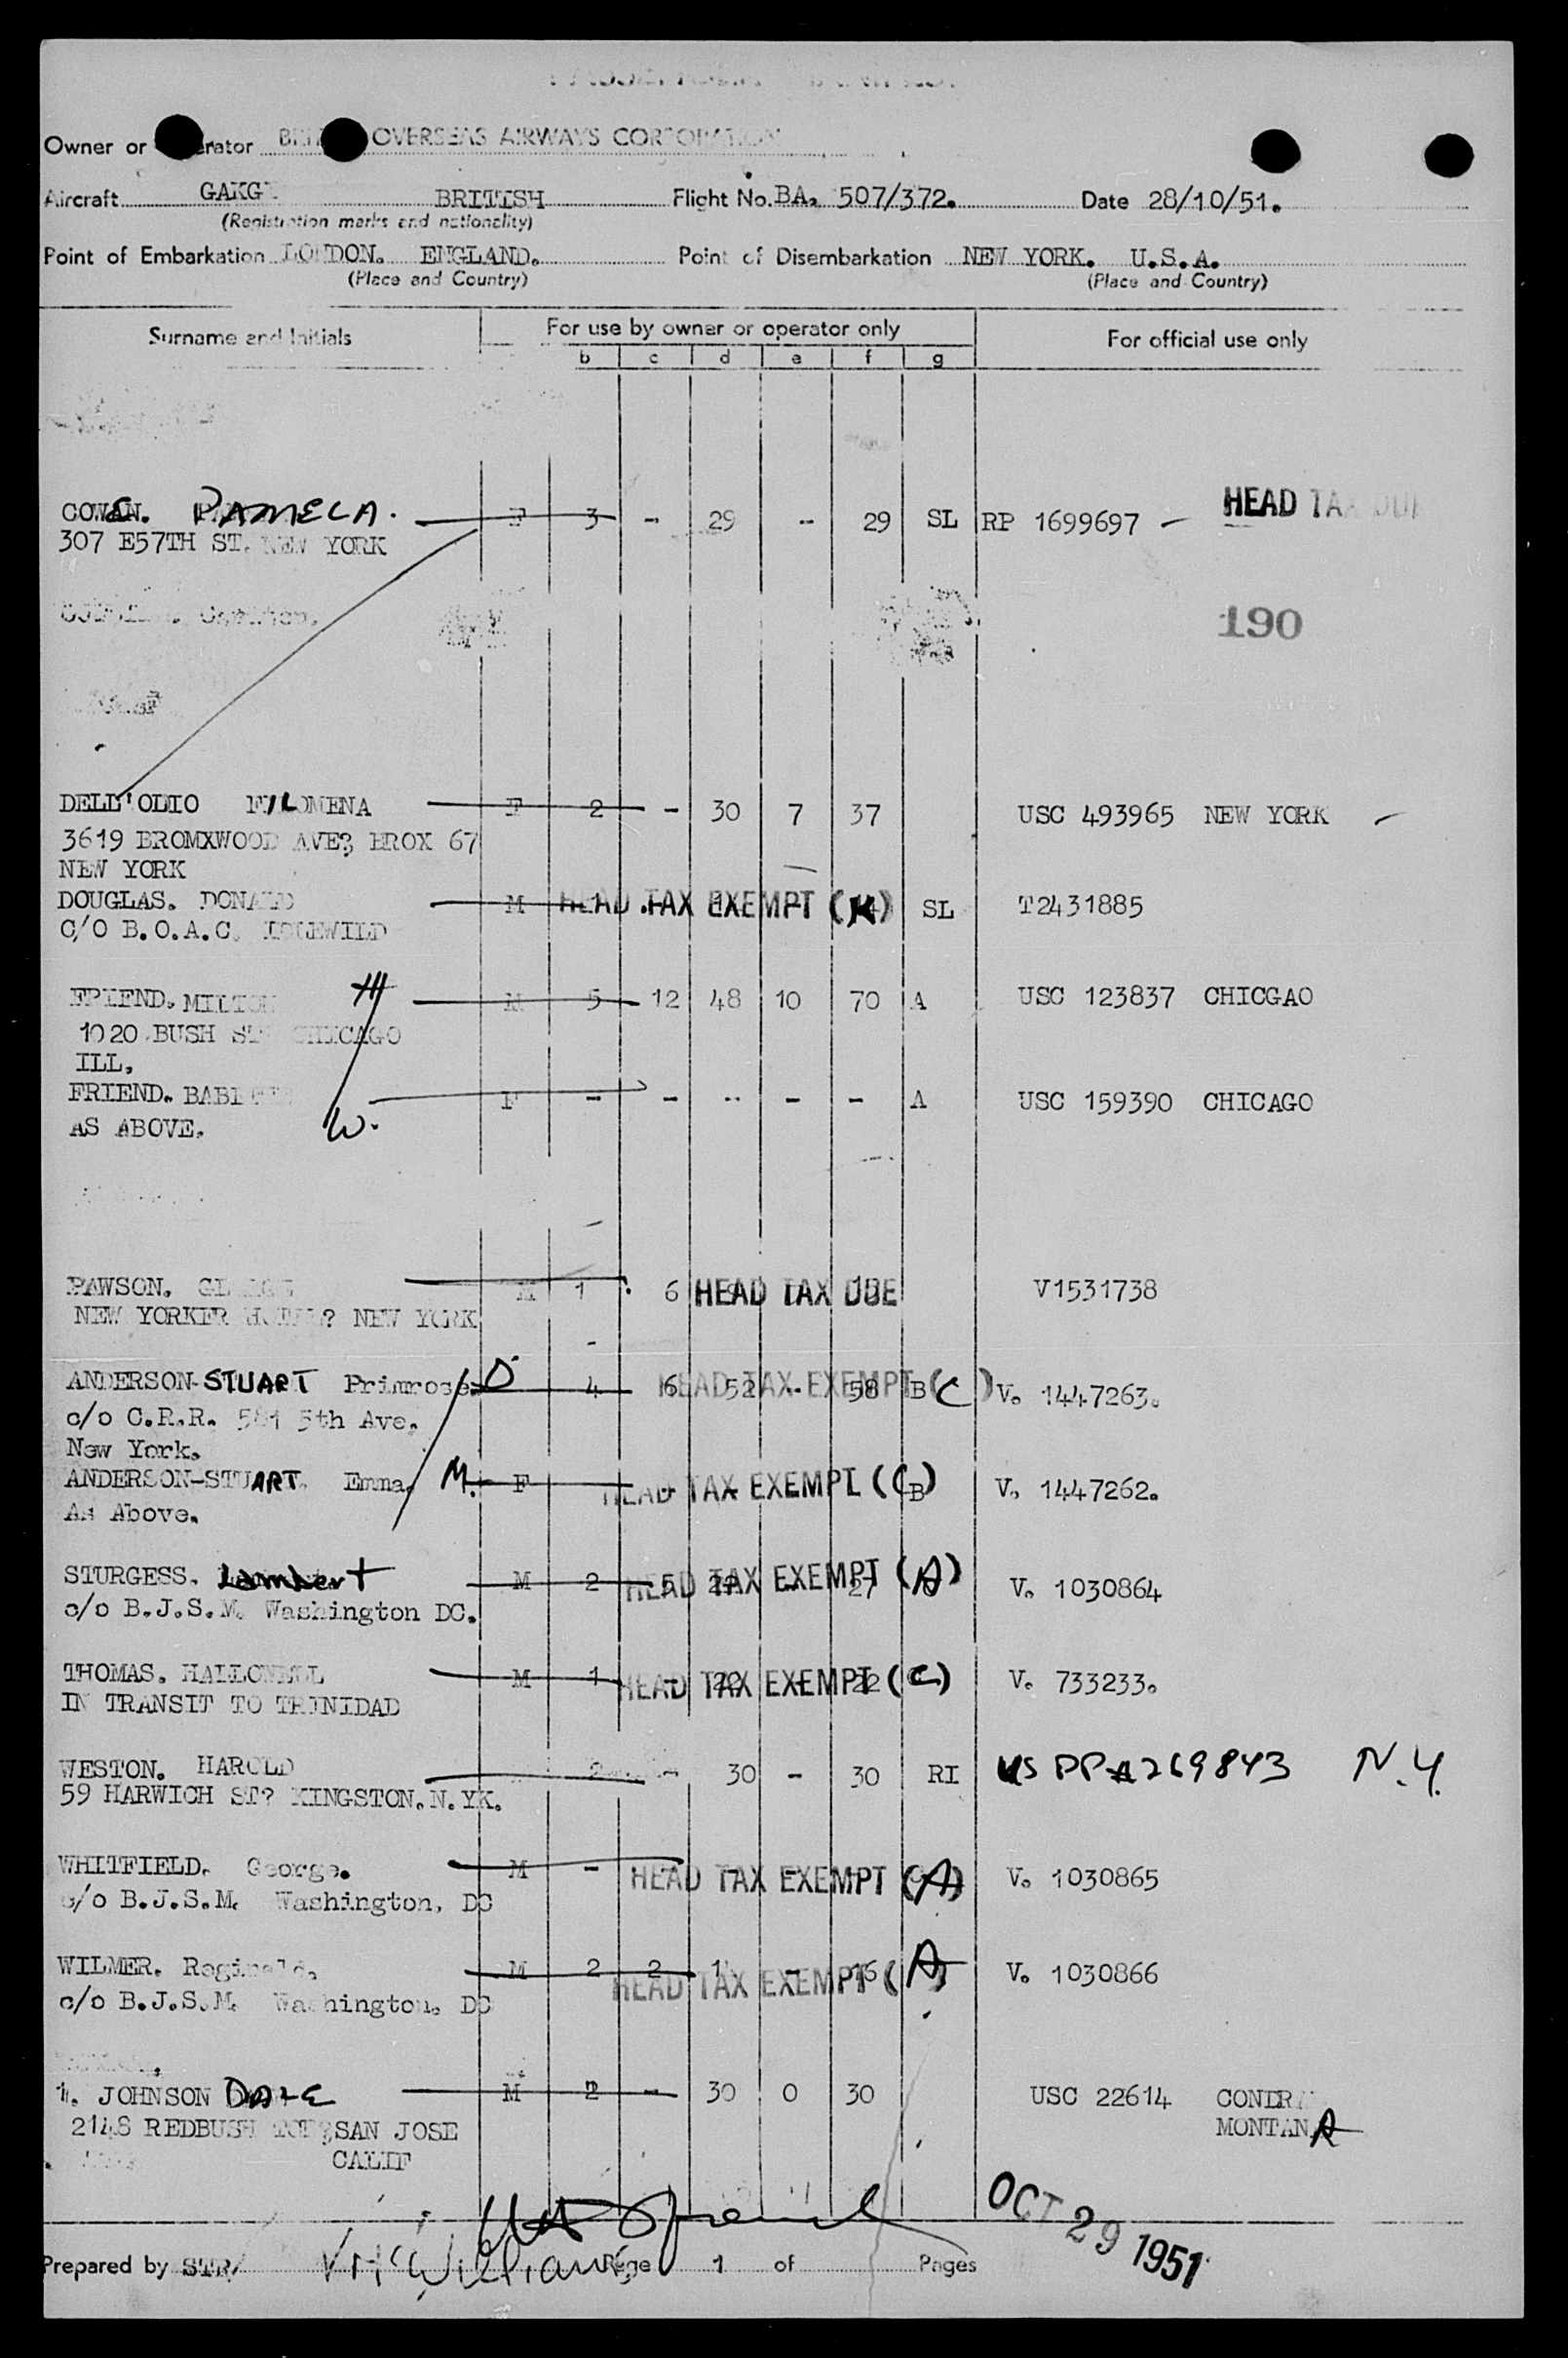 Owner or OVERSEAS AIRWAYS CORPORATION
Aircraft BRITISH Flight No. BA. 507/372. Date 28/10/51.
(Registration marks and nationality)
Point of Embarkation LONDON. ENGLAND. Point of Disembarkation NEW YORK. U.S.A.
(Place and Country) (Place and Country)
Surname and Initials For use by owner or operator only For official use only
b c d e f g
COWAN. PAMELA. F 3 - 29 - 29 SL RP 1699697 - HEAD TAX DUE
307 E57TH ST. NEW YORK
190
DELL'OLIO FILOMENA F 2 - 30 7 37 USC 493965 NEW YORK -
3619 BROMXWOOD AVE? BROX 67
NEW YORK
DOUGLAS. DONALD M HEAD TAX EXEMPT SL T2431885
C/O B.O.A.C. IDLEWILD
FRIEND. MILTON H M 5 12 48 10 70 A USC 123837 CHICGAO
1020 BUSH ST CHICAGO
ILL.
FRIEND. W. F - - - - - A USC 159390 CHICAGO
AS ABOVE.
PAWSON. M 1 6 HEAD TAX DUE V1531738
NEW YORKER HOTEL? NEW YORK
ANDERSON-STUART Primrose. D 4 6 52 - 58 B HEAD TAX EXEMPT (C) V. 1447263.
c/o C.R.R. 581 5th Ave.
New York.
ANDERSON-STUART. Emma. M. F HEAD TAX EXEMPT (C) B V. 1447262.
As Above.
STURGESS. Lambert M 2 5 22 - 27 HEAD TAX EXEMPT (A) V. 1030864
c/o B.J.S.M. Washington DC.
THOMAS. HALLOWELL M 1 - 22 - 22 HEAD TAX EXEMPT (C) V. 733233.
IN TRANSIT TO TRINIDAD
WESTON. HAROLD 2 - 30 - 30 RI US PP# 269843 N.Y.
59 HARWICH ST? KINGSTON. N. YK.
WHITFIELD. George. M - - - - HEAD TAX EXEMPT (A) V. 1030865
c/o B.J.S.M. Washington, DC
WILMER. Reginald. M 2 2 - 16 HEAD TAX EXEMPT (A) V. 1030866
c/o B.J.S.M. Washington. DC
JOHNSON DALE M 2 - 30 0 30 USC 22614
2148 REDBUSH SAN JOSE MONTANA
CALIF
OCT 29 1951
Prepared by STR/ Page 1 of Pages